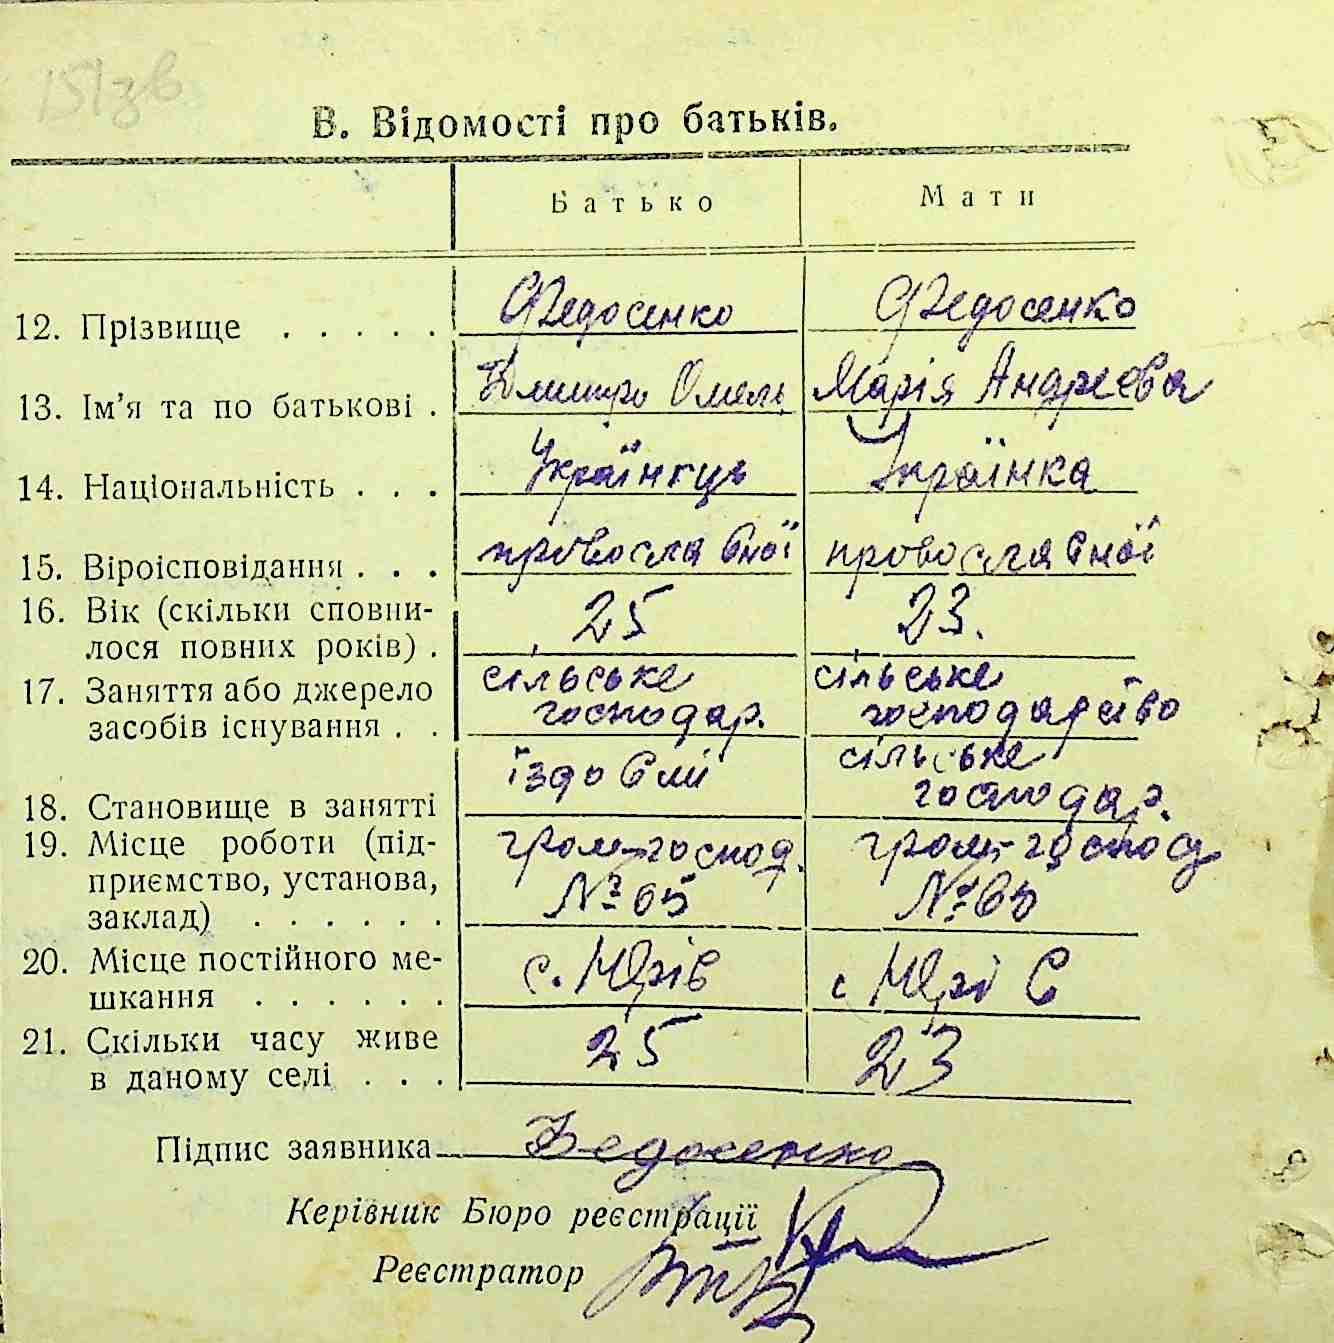 151зв
В. Відомості про батьків.
Батько Мати
12. Прізвище . . . . . Федосенко Федосенко
13. Ім'я та по батькові . Дмитро Омель Марія Андрєєва
14. Національність . . . Українець Українка
15. Віроісповідання . . . провославної провославної
16. Вік (скільки сповни-
лося повних років) . 25 23.
17. Заняття або джерело сільське сільське
засобів існування . . господар. господарство
18. Становище в занятті їздовий сільське
господар.
19. Місце роботи (під- гром-господ. гром-господ
приємство, установа, № 65 № 65
заклад) . . . . . .
20. Місце постійного ме- с. Юрів с Юрів
шкання . . . . . .
21. Скільки часу живе 25 23
в даному селі . . .
Підпис заявника Федосенко
Керівник Бюро реєстрації
Реєстратор